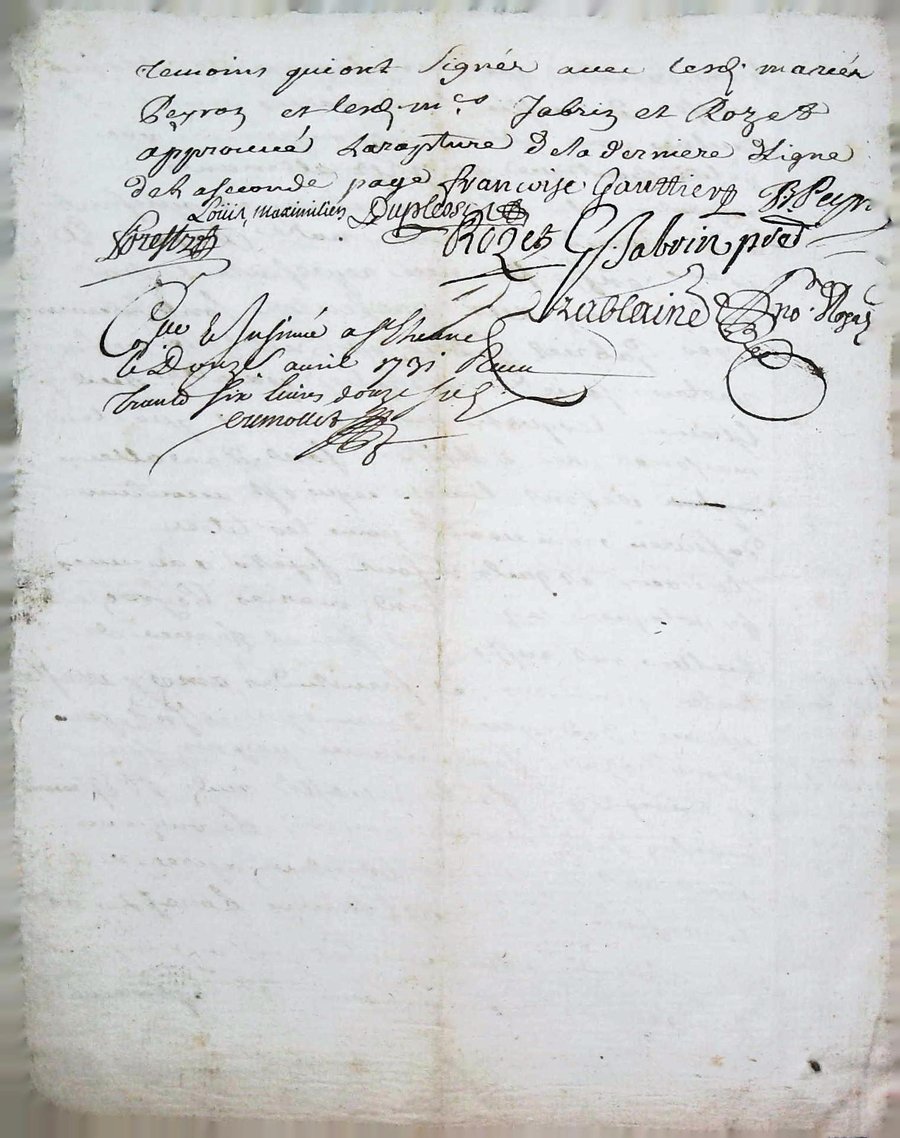 temoins qui ont signés avec lesd. mariés
Peyron et lesd. mes Jabrin et Rozet
approuvé La rapture de la derniere Ligne
de la seconde page francoise Gauttier P. Peyr
Louis Maximilien Dupleos
forest Rozet G. Jabrin pred
Chablaine no. Royal
Coñlle & Insinué a St Etienne
le Douze avril 1731 Receu
trante six livres douze sols
cremollet